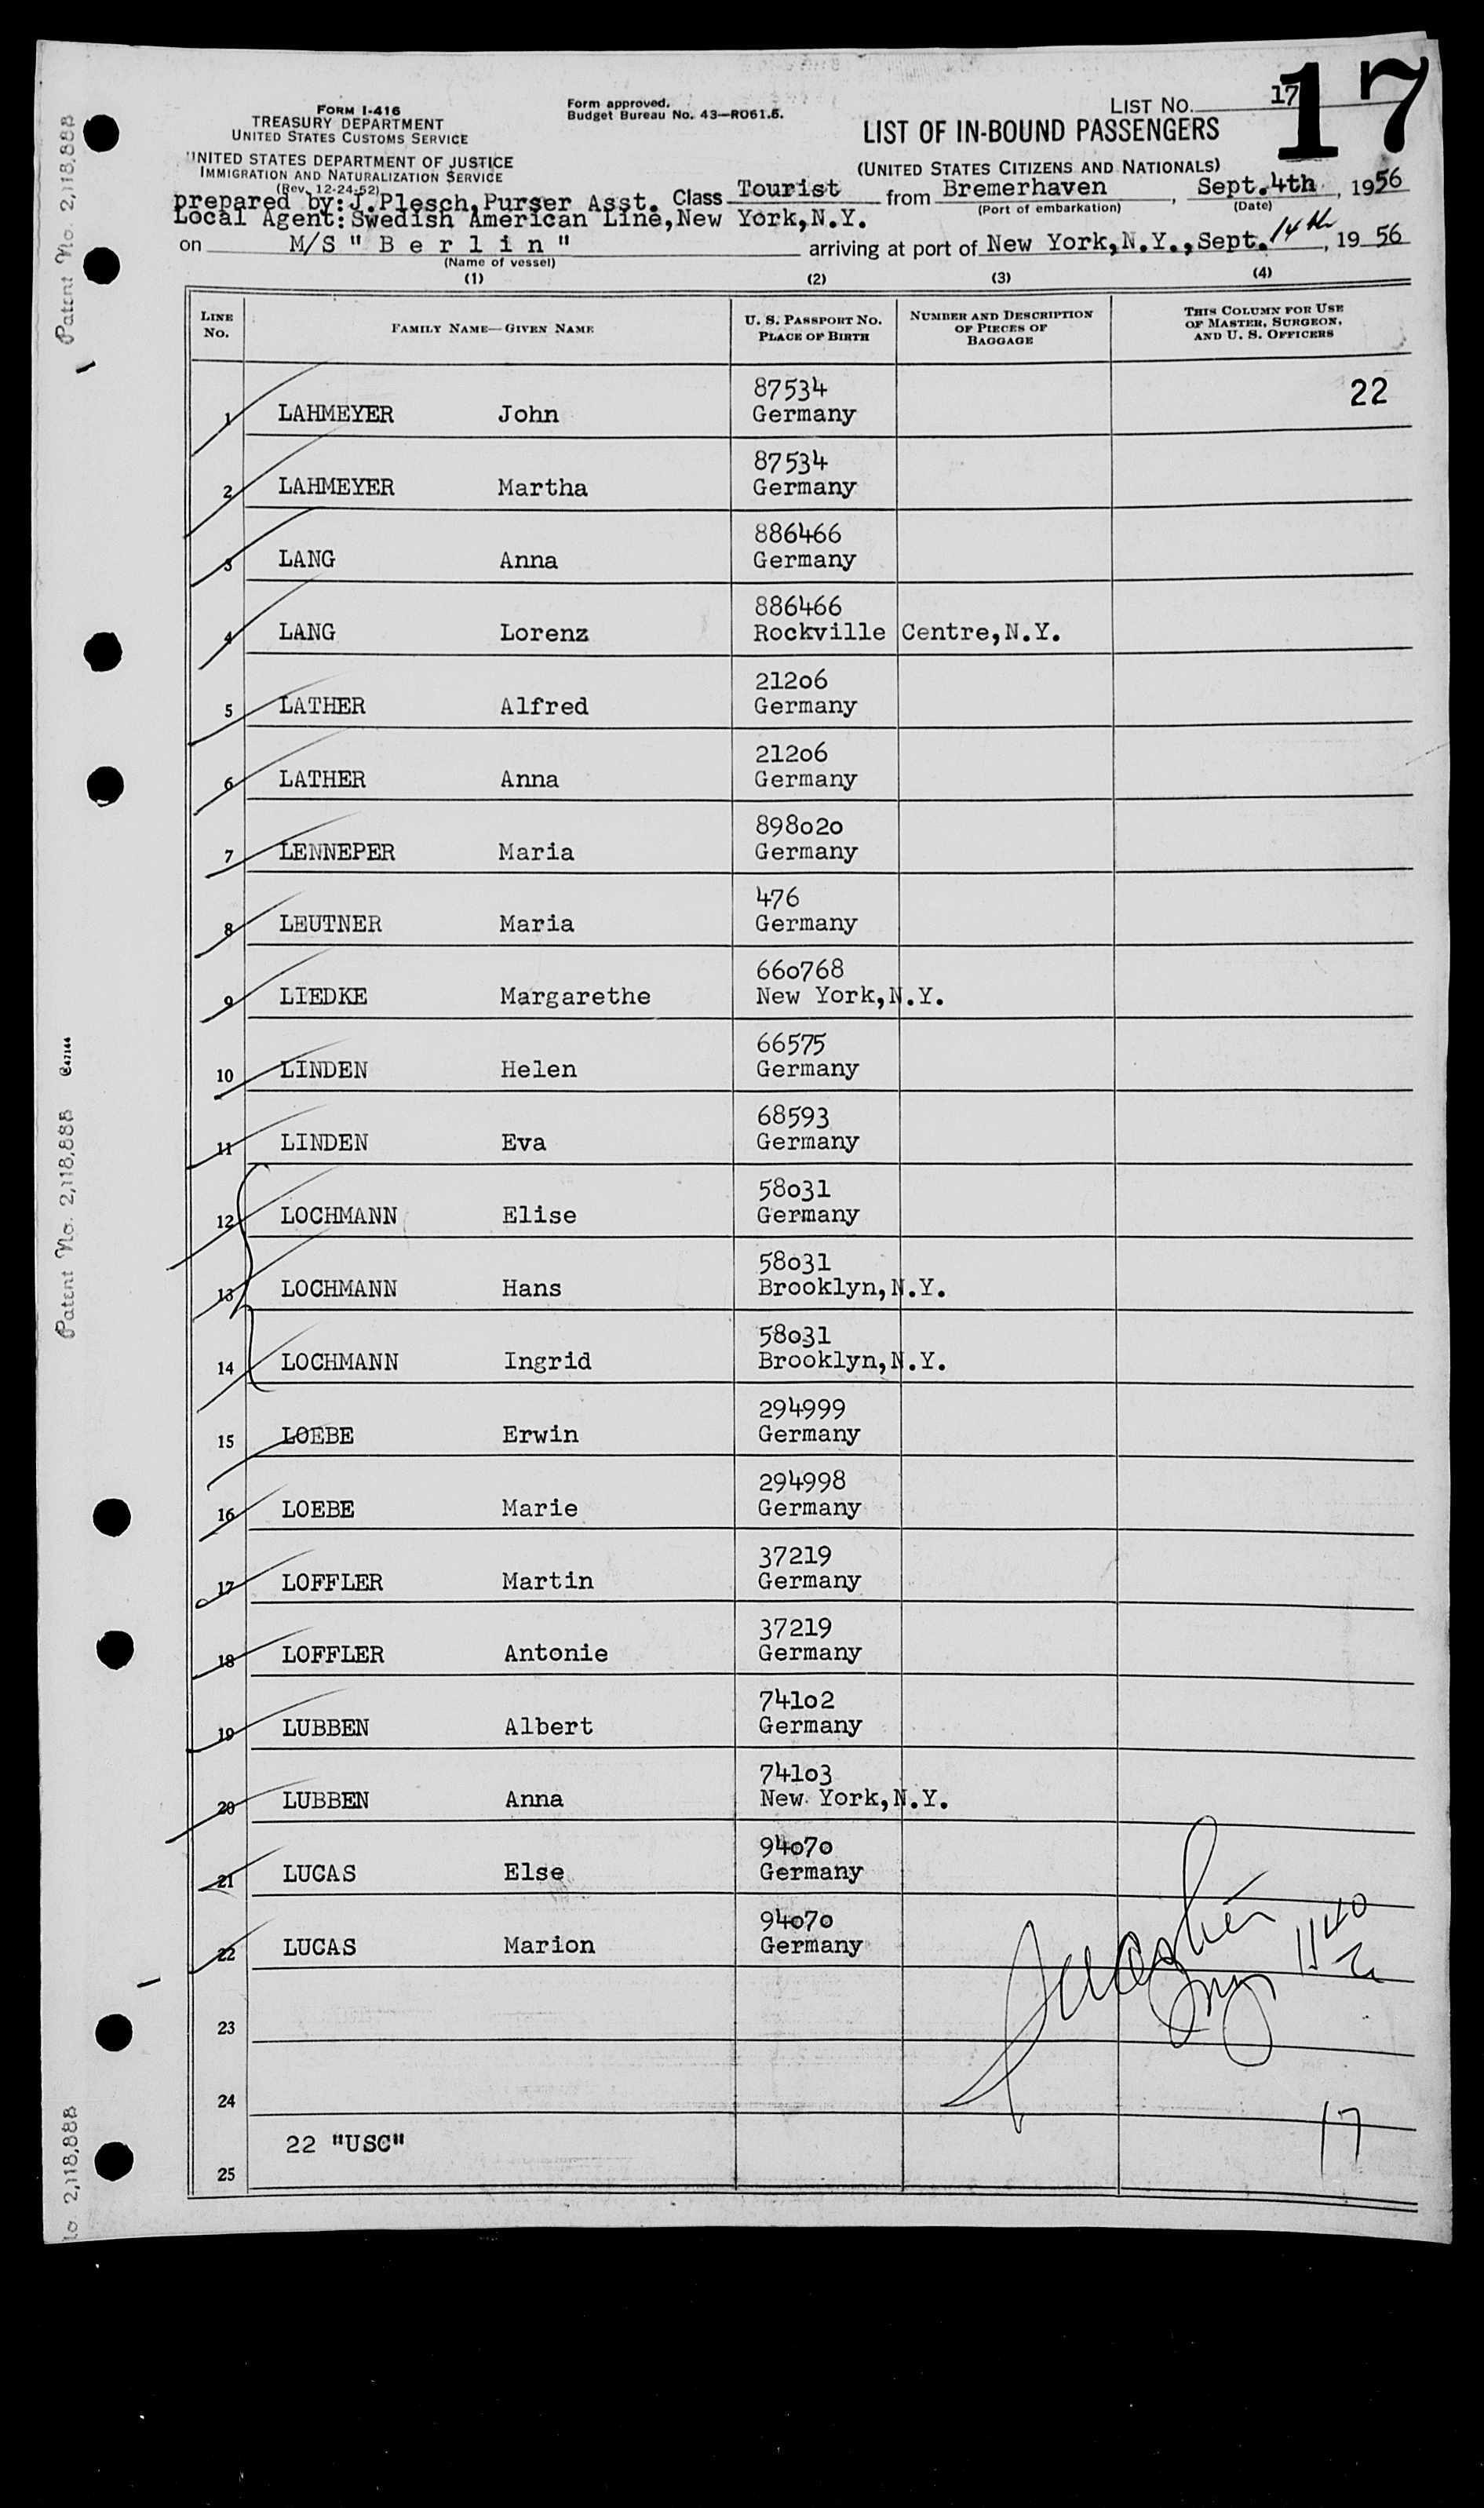 17
LIST No. 17
FORM I-416
TREASURY DEPARTMENT
UNITED STATES CUSTOMS SERVICE
Form approved.
Budget Bureau No. 43—RO61.5.
LIST OF IN-BOUND PASSENGERS
UNITED STATES DEPARTMENT OF JUSTICE
IMMIGRATION AND NATURALIZATION SERVICE
(Rev. 12-24-52)
(UNITED STATES CITIZENS AND NATIONALS)
prepared by: J.Plesch, Purser Asst. Class Tourist from Bremerhaven, Sept. 4th, 1956
(Port of embarkation) (Date)
Local Agent: Swedish American Line, New York, N.Y.
on M/S " B e r l i n " arriving at port of New York, N.Y., Sept. 14th, 1956
(Name of vessel)
(1) (2) (3) (4)
LINE No. FAMILY NAME—GIVEN NAME U. S. PASSPORT No. PLACE OF BIRTH NUMBER AND DESCRIPTION OF PIECES OF BAGGAGE THIS COLUMN FOR USE OF MASTER, SURGEON, AND U. S. OFFICERS
87534 22
1 LAHMEYER John Germany
87534
2 LAHMEYER Martha Germany
886466
3 LANG Anna Germany
886466
4 LANG Lorenz Rockville Centre, N.Y.
21206
5 LATHER Alfred Germany
21206
6 LATHER Anna Germany
898020
7 LENNEPER Maria Germany
476
8 LEUTNER Maria Germany
660768
9 LIEDKE Margarethe New York, N.Y.
66575
10 LINDEN Helen Germany
68593
11 LINDEN Eva Germany
58031
12 LOCHMANN Elise Germany
58031
13 LOCHMANN Hans Brooklyn, N.Y.
58031
14 LOCHMANN Ingrid Brooklyn, N.Y.
294999
15 LOEBE Erwin Germany
294998
16 LOEBE Marie Germany
37219
17 LOFFLER Martin Germany
37219
18 LOFFLER Antonie Germany
74102
19 LUBBEN Albert Germany
74103
20 LUBBEN Anna New York, N.Y.
94070
21 LUCAS Else Germany
94070
22 LUCAS Marion Germany
23
24
22 "USC" 17
25
Patent No. 2,118,888
Patent No. 2,118,888
No 2,118,888